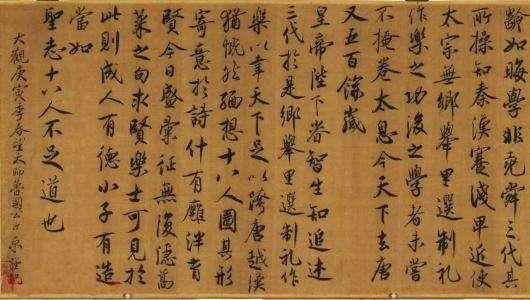 齡如晦學非堯舜三代具
所操知秦漢蹇淺卑近使
太宗無鄉舉里選制礼
作樂之功後之學者未嘗
不掩卷太息今天下去唐
又五百餘歲
皇帝陛下睿智生知追述
三代於是鄉舉里選制礼作
樂以幸天下足以跨唐越漢
猶慨然緬想十八人圖其形
寄意於詩什有廱泮育
賢今日盛彙征無復隱蒿
萊之句求賢樂士可見於
此則成人有德小子有造
當如
聖志十八人不足道也
大觀庚寅季春望太師魯國公臣京謹記